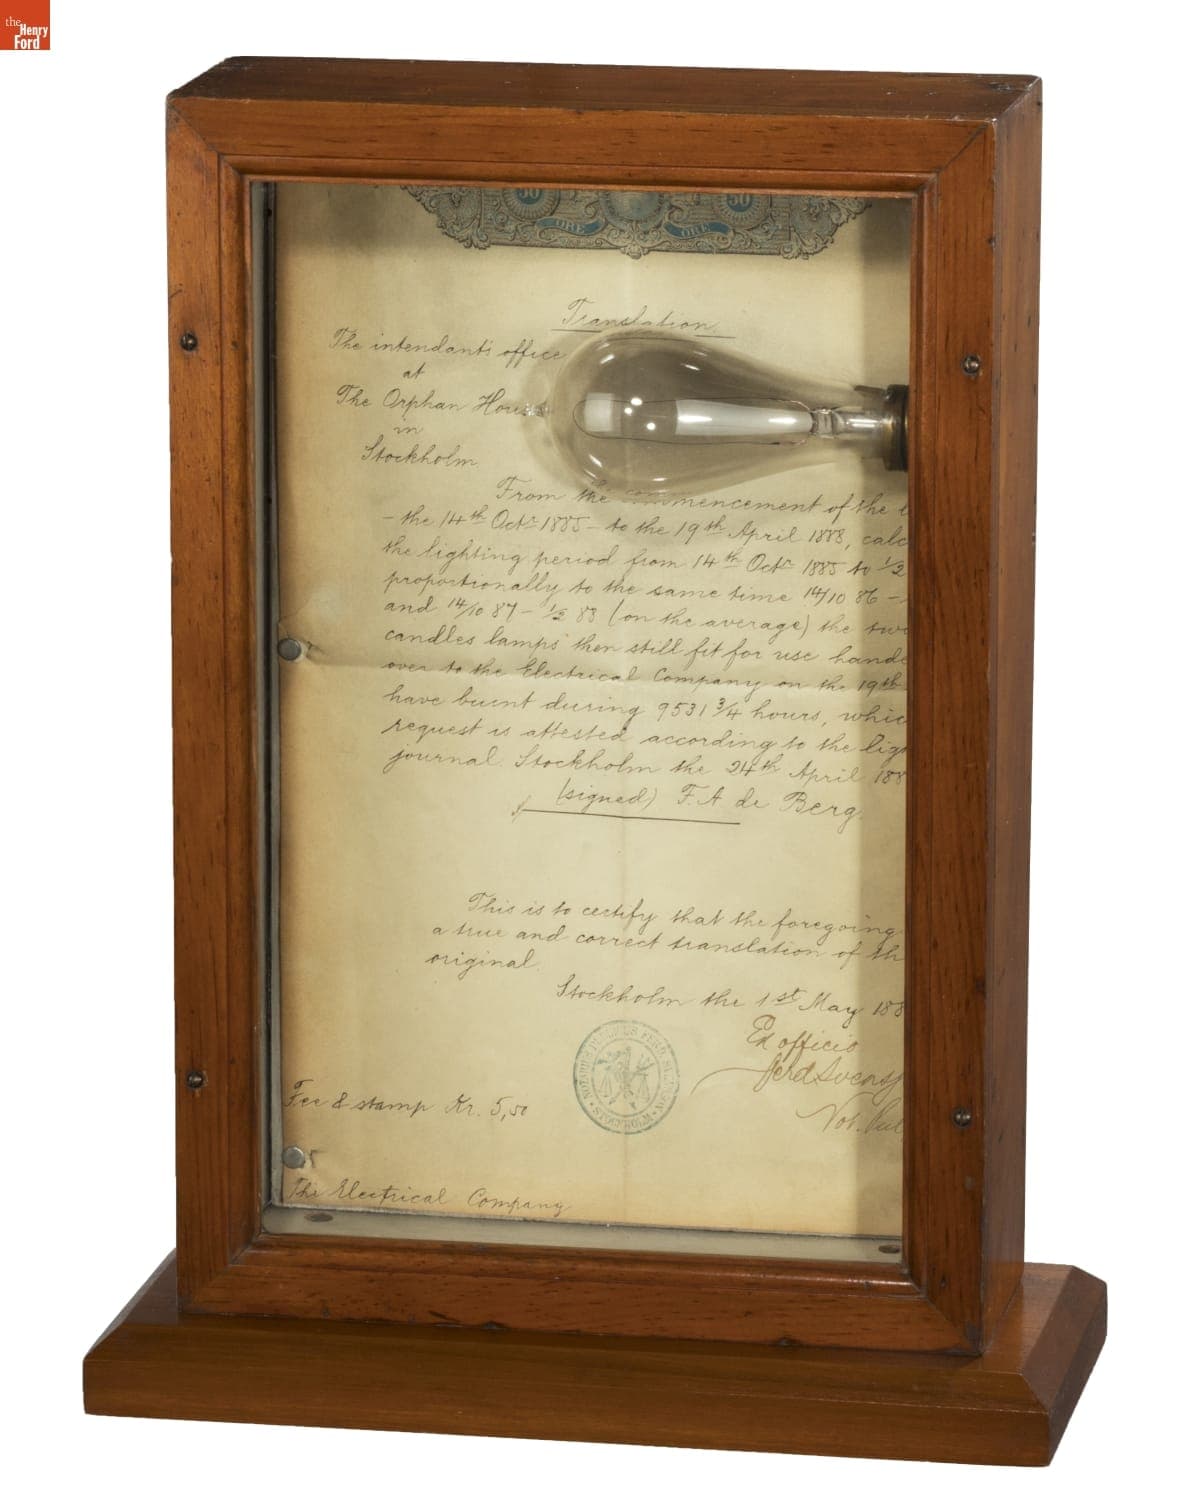 the
Henry
Ford
50 50
ÖRE ÖRE
Translation
The intendant's office
at
The Orphan House
in
Stockholm
From the commencement of the
– the 14th Octr 1885 – to the 19th April 1888, calc
the lighting period from 14th Octr 1885 to 1/2
proportionally to the same time 14/10 86 –
and 14/10 87 – 1/2 88 (on the average) the two
candles lamps then still fit for use hande
over to the Electrical Company on the 19th
have burnt during 9531 3/4 hours, whic
request is attested according to the lig
journal. Stockholm the 24th April 188
(signed) F. A de Berg.
This is to certify that the foregoing
a true and correct translation of th
original.
Stockholm the 1st May 188
Ex officio
Not. Pub
NOTARIUS PUBLICUS
STOCKHOLM
Fee & stamp Kr. 5,50
The Electrical Company